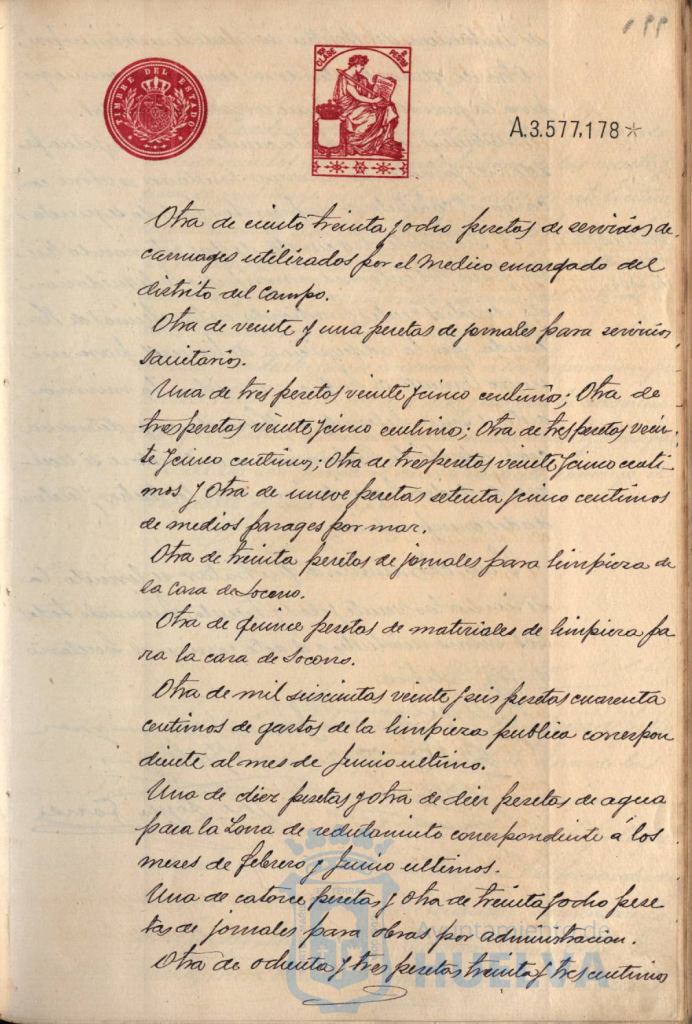 199
TIMBRE DEL ESTADO
10ª CLASE
2 PESETAS
A.3.577,178*
Otra de ciento treinta y ocho pesetas de servicios de
carruages utilizados por el Medico encargado del
distrito del Campo.
Otra de veinte y una pesetas de jornales para servicios
sanitarios.
Una de tres pesetas veinte y cinco centimos; Otra de
tres pesetas veinte y cinco centimos; Otra de tres pesetas vein-
te y cinco centimos; Otra de tres pesetas veinte y cinco centi-
mos y Otra de nueve pesetas setenta y cinco centimos
de medios parages por mar.
Otra de treinta pesetas de jornales para limpieza de
la casa de Socorro.
Otra de quince pesetas de materiales de limpieza pa
ra la casa de Socorro.
Otra de mil seiscientas veinte y seis pesetas cuarenta
centimos de gastos de la limpieza publica correspon
diente al mes de Junio ultimo.
Una de diez pesetas y otra de diez pesetas de agua
para la Zona de reclutamiento correspondiente á los
meses de febrero y Junio ultimos.
Una de catorce pesetas y otra de treinta y ocho pese
tas de jornales para obras por administracion.
Otra de ochenta y tres pesetas treinta y tres centimos
Ayuntamiento de
HUELVA